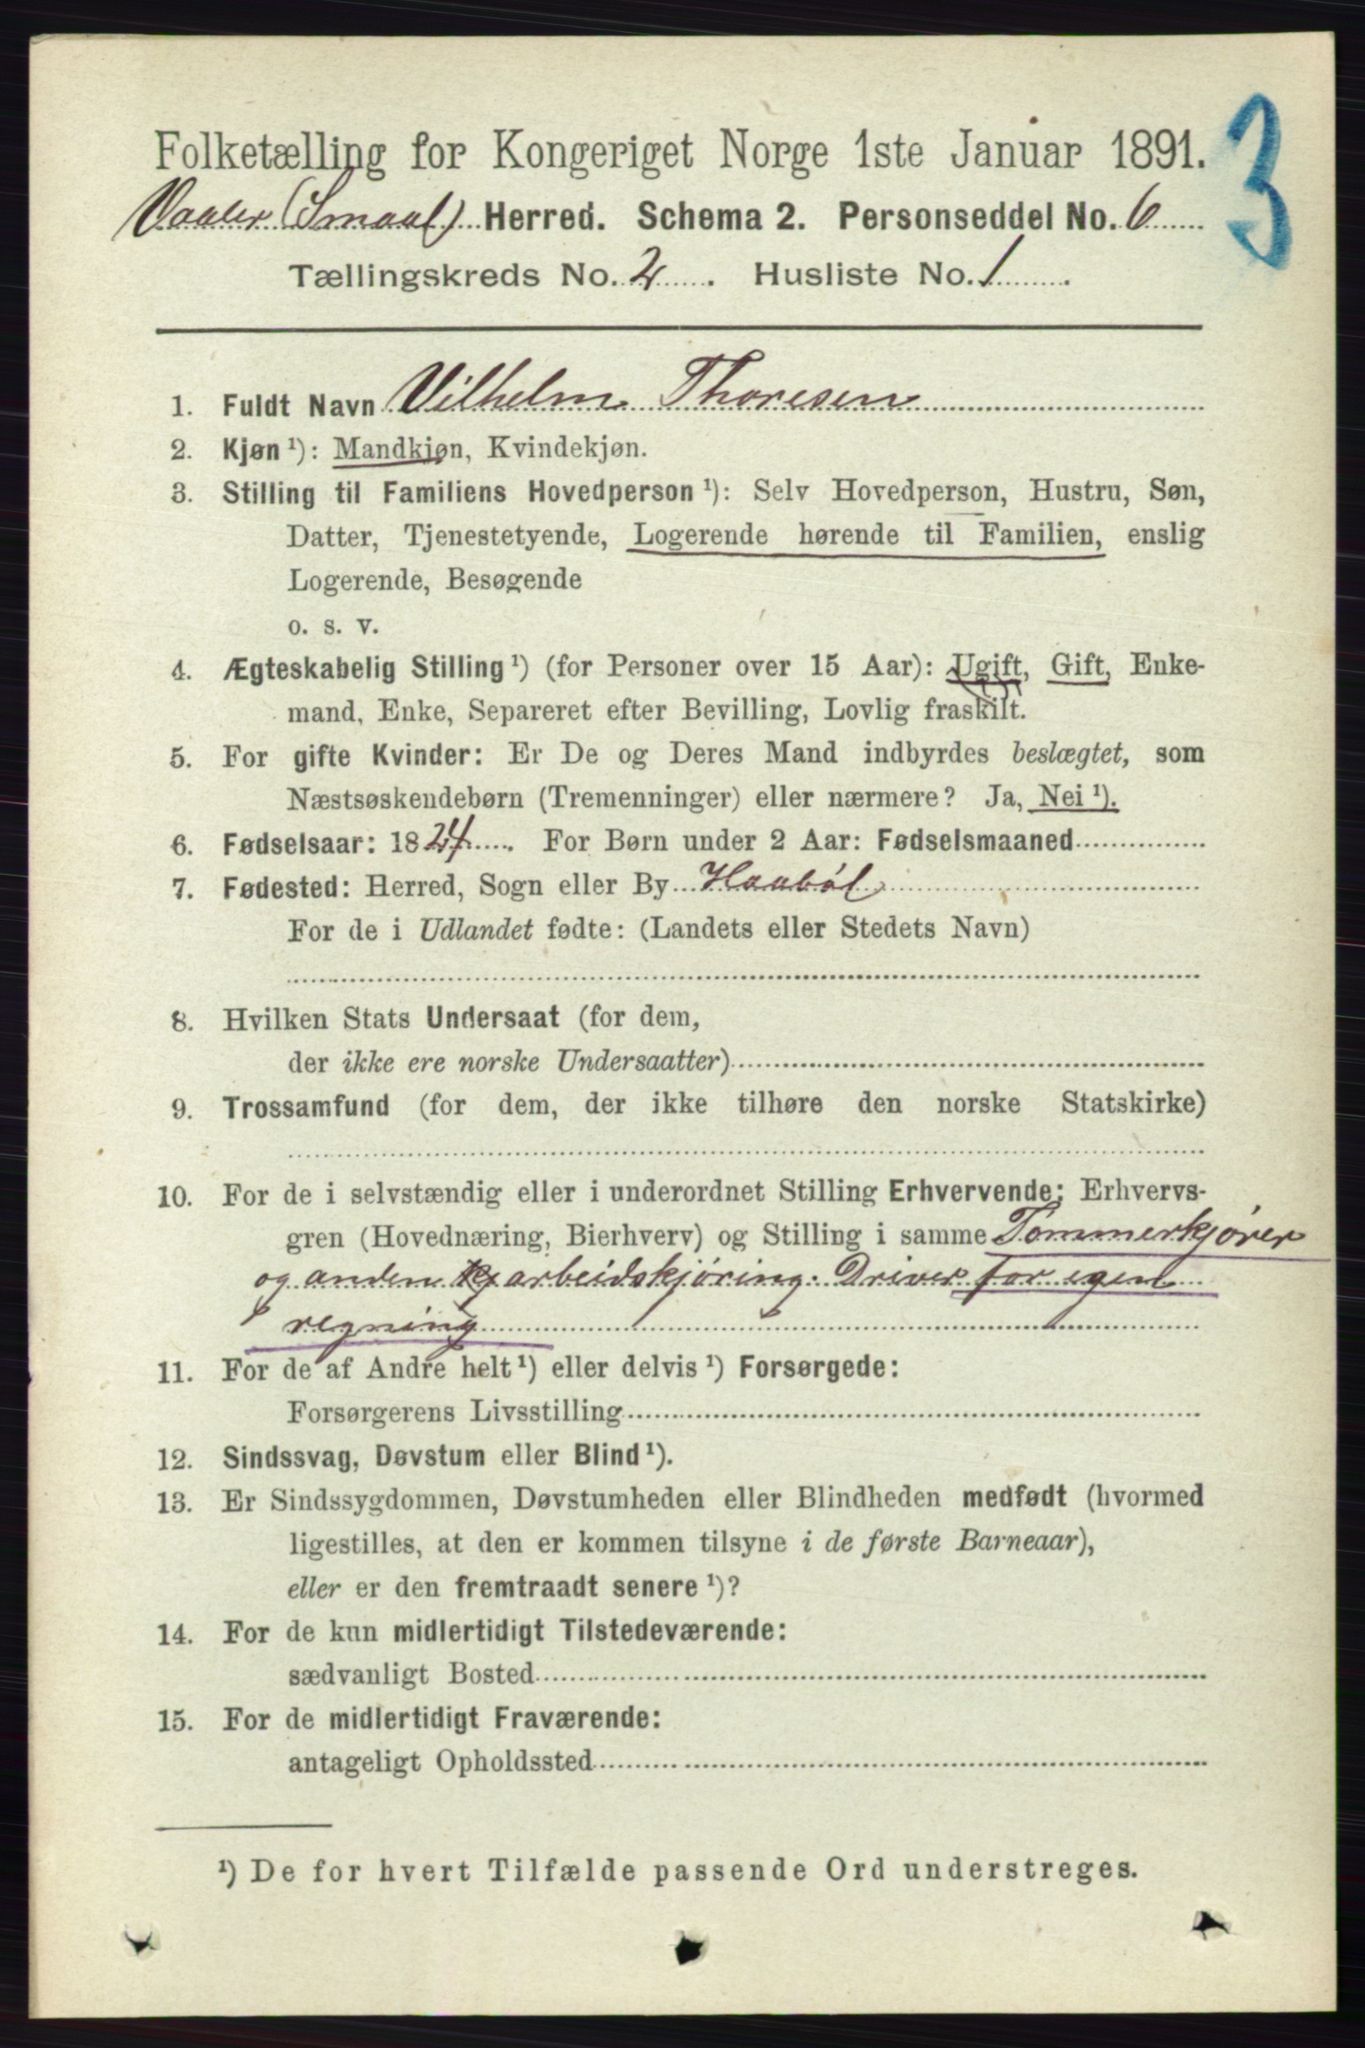 3
Folketælling for Kongeriget Norge 1ste Januar 1891.
Vaaler (Smaal) Herred. Schema 2. Personseddel No. 6
Tællingskreds No. 2. Husliste No. 1.
1. Fuldt Navn Vilhelm Thoresen
2. Kjøn ¹): Mandkjøn, Kvindekjøn.
3. Stilling til Familiens Hovedperson ¹): Selv Hovedperson, Hustru, Søn,
Datter, Tjenestetyende, Logerende hørende til Familien, enslig
Logerende, Besøgende
o. s. v.
4. Ægteskabelig Stilling ¹) (for Personer over 15 Aar): Ugift, Gift, Enke-
mand, Enke, Separeret efter Bevilling, Lovlig fraskilt.
5. For gifte Kvinder: Er De og Deres Mand indbyrdes beslægtet, som
Næstsøskendebørn (Tremenninger) eller nærmere? Ja, Nei ¹).
6. Fødselsaar: 1824. For Børn under 2 Aar: Fødselsmaaned
7. Fødested: Herred, Sogn eller By Haabøl
For de i Udlandet fødte: (Landets eller Stedets Navn)
8. Hvilken Stats Undersaat (for dem,
der ikke ere norske Undersaatter)
9. Trossamfund (for dem, der ikke tilhøre den norske Statskirke)
10. For de i selvstændig eller i underordnet Stilling Erhvervende: Erhvervs-
gren (Hovednæring, Bierhverv) og Stilling i samme Tømmerkjører
og anden arbeidskjøring. Driver for egen
regning
11. For de af Andre helt ¹) eller delvis ¹) Forsørgede:
Forsørgerens Livsstilling
12. Sindssvag, Døvstum eller Blind ¹).
13. Er Sindssygdommen, Døvstumheden eller Blindheden medfødt (hvormed
ligestilles, at den er kommen tilsyne i de første Barneaar),
eller er den fremtraadt senere ¹)?
14. For de kun midlertidigt Tilstedeværende:
sædvanligt Bosted
15. For de midlertidigt Fraværende:
antageligt Opholdssted
¹) De for hvert Tilfælde passende Ord understreges.